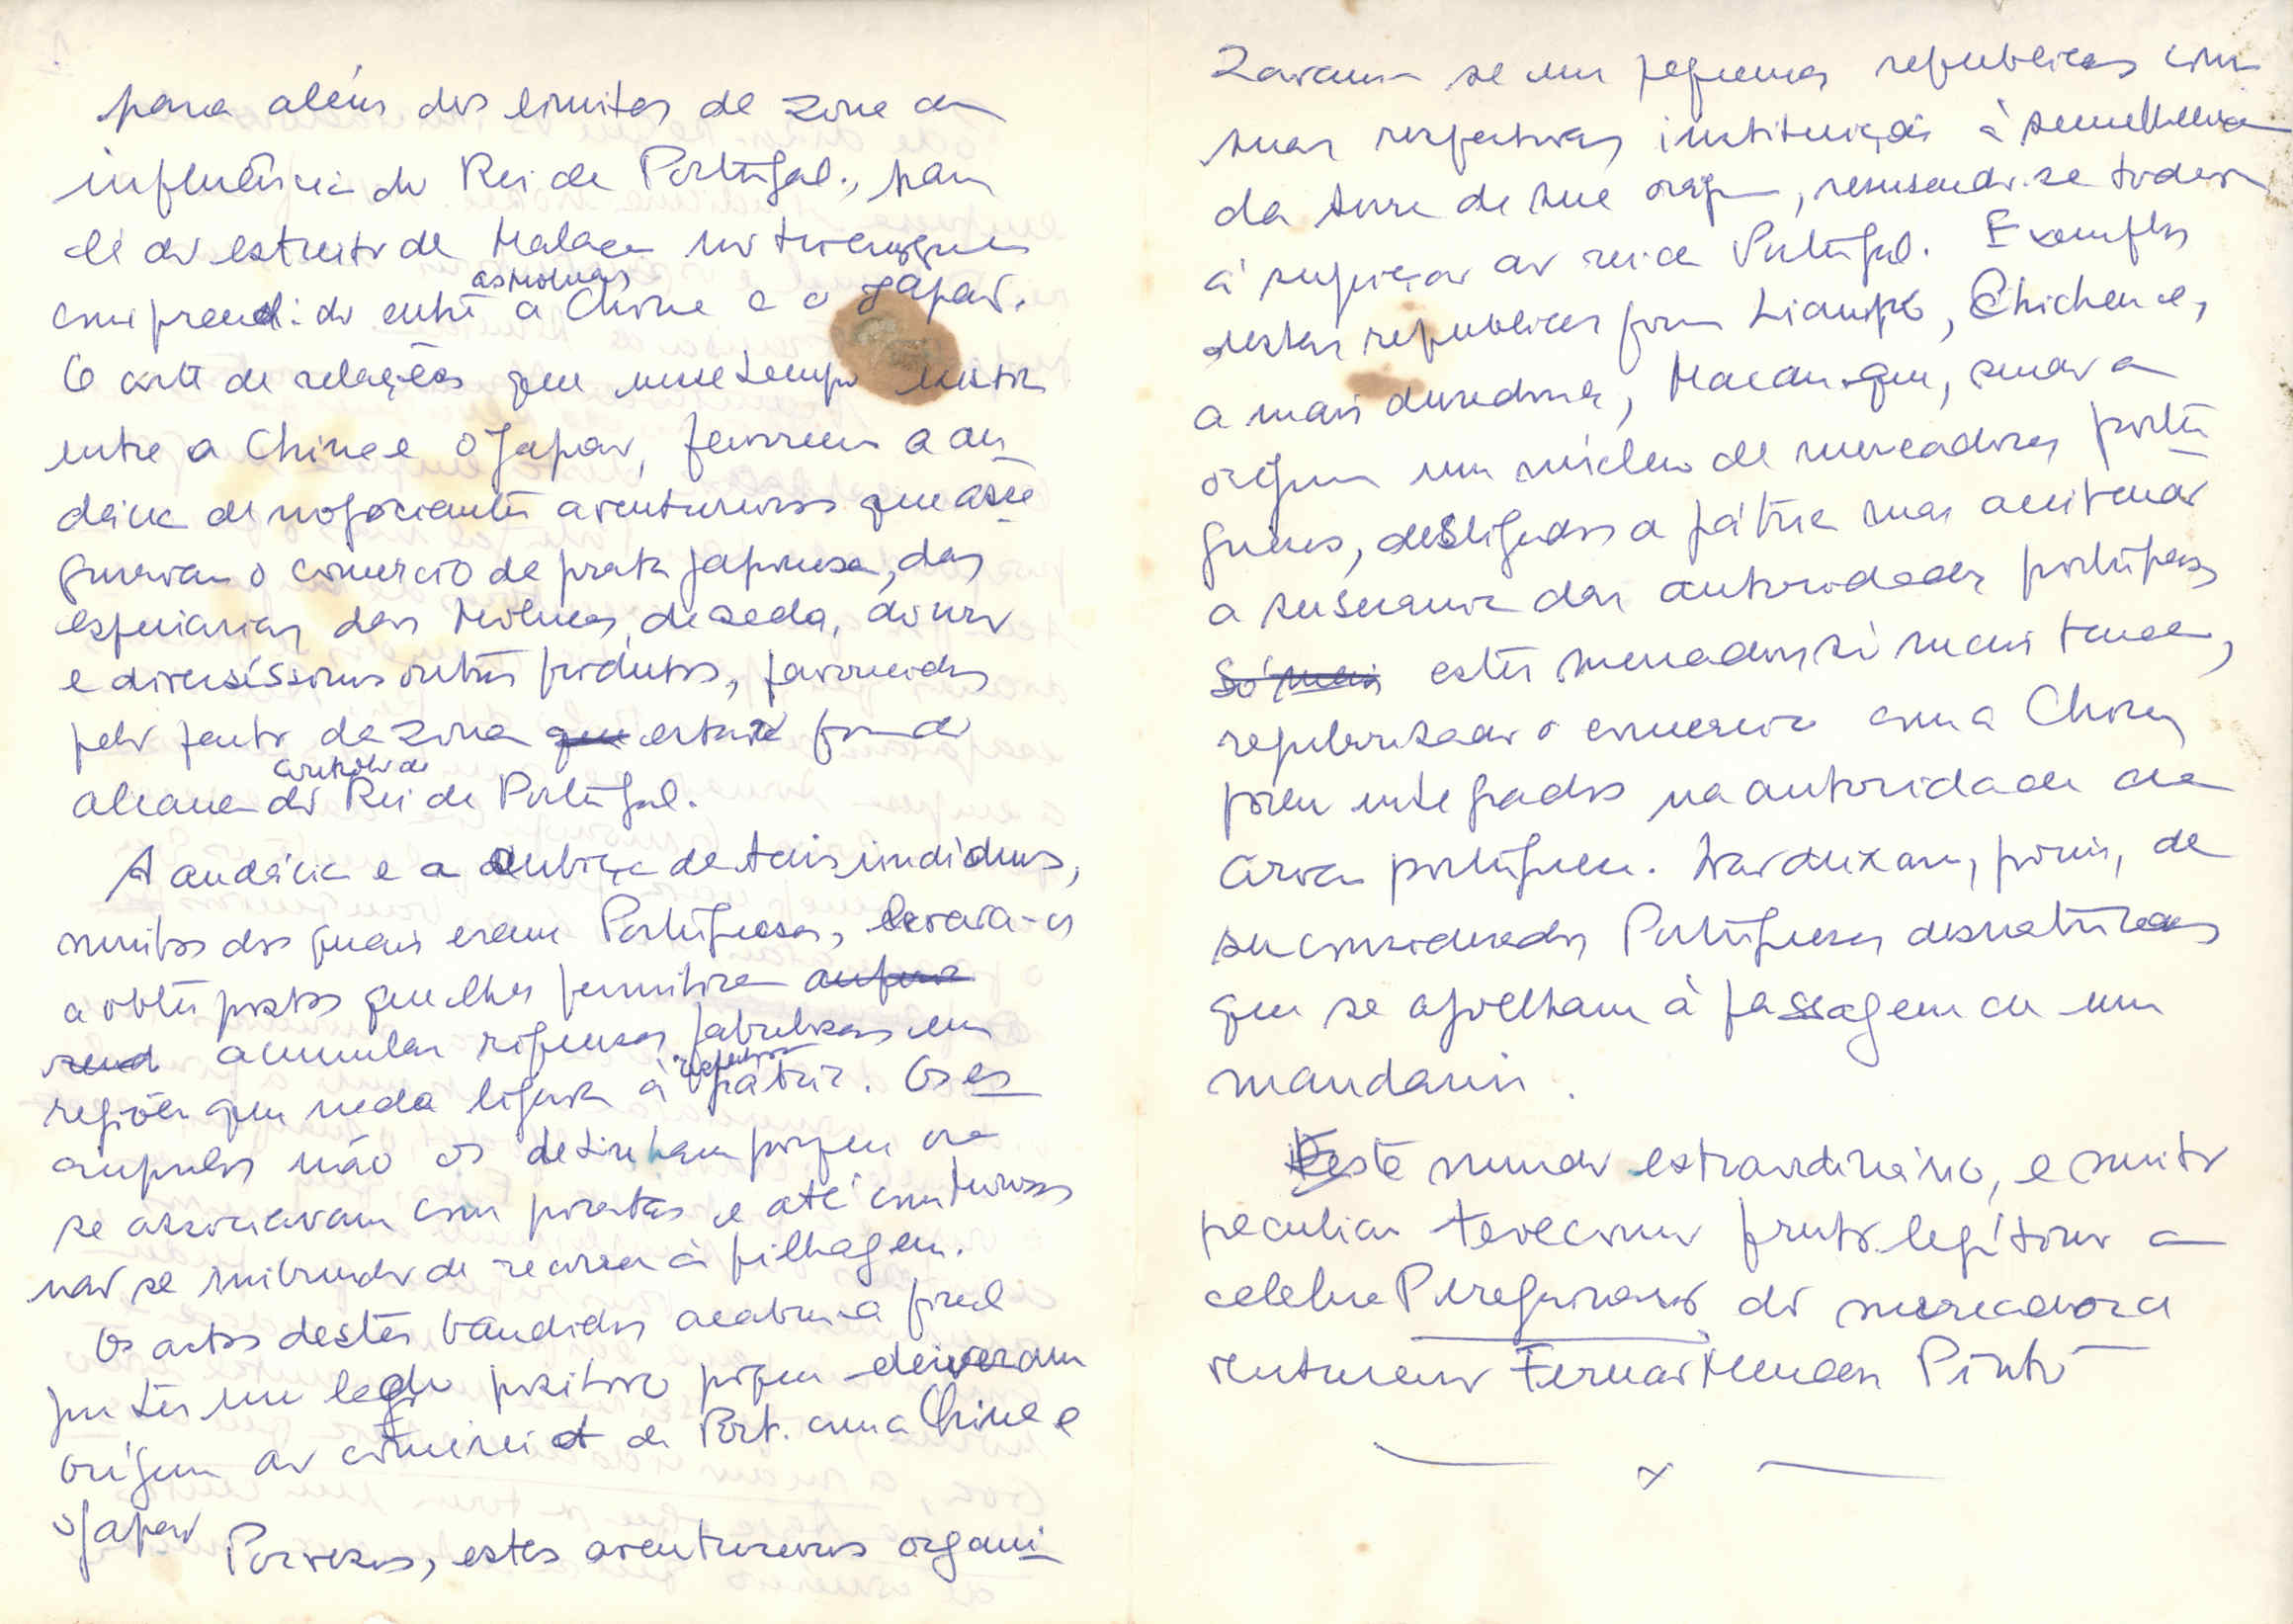 para além dos limites de zona de
influência do Rei de Portugal, para
lá do estreito de Malaca no triangulo
as Molucas
comprendido entre a China e o Japão.
O corte de relações que nesse tempo existia
entre a China e o Japão, favoreceu a au
dácia de negociantes aventureiros que asse
guravam o comercio de prata japonesa, das
especiarias das Molucas, de seda, do ouro
e diversíssimos outros produtos, favorecidos
pelo facto da zona que estar fora do
controle do
alcance do Rei de Portugal.
A audácia e a cubiça de tais individuos,
muitos dos quais eram Portugueses, levava-os
a obter postos que lhes permitira
acumular riquezas fabulosas em
respectiva
regiões que nada ligava à pátria. Os es
crupulos não os detinham porque ora
se associavam com piratas e até com turcos
não se inibindo de recorrer à pilhagem.
Os actos destes bandidos acabaria final
por ter um lado positivo porque deu-veram
origem ao comercio de Port. com a China e
o Japão
Por vezes, estes aventureiros organi
zavam-se em pequenas republicas com
suas respectivas instituições à semelhança
da terra de sua origem, recusando-se todavia
à sujeição ao rei de Portugal. Exemplos
destas republicas foram Liampó, Chincheu e,
a mais duradoura, Macau que, senão a
origem um núcleo de mercadores portu
gueses, desligados a pátria mas aceitando
a suserania das autoridades portuguesas
Só mais estes mercadores só mais tarde,
regularizado o comercio com a China
foram integrados na autoridade da
coroa portuguesa. Não deixam, porém, de
ser considerados Portugueses desnaturados
que se ajoelham à passagem de um
mandarim.
Deste mundo extraordinário, e muito
peculiar teve como fruto legítimo a
celebre Peregrinação do mercador a
ventureiro Fernão Mendes Pinto
x